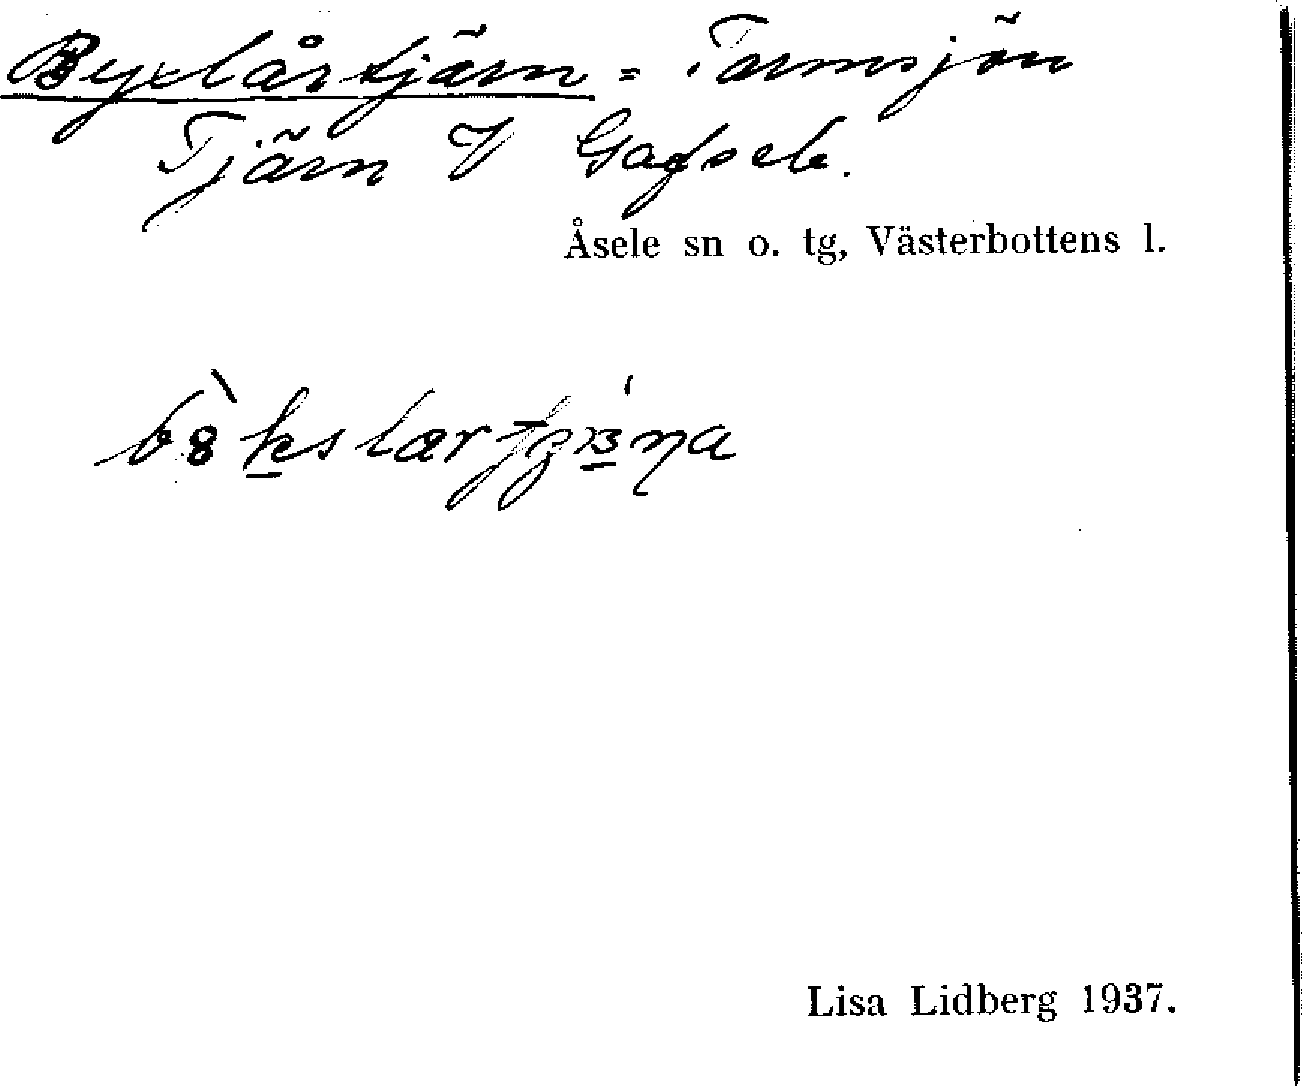 Byxlårtjärn = Tarmsjön
Tjärn V Gafsele.
Åsele sn o. tg, Västerbottens l.
Lisa Lidberg 1937.